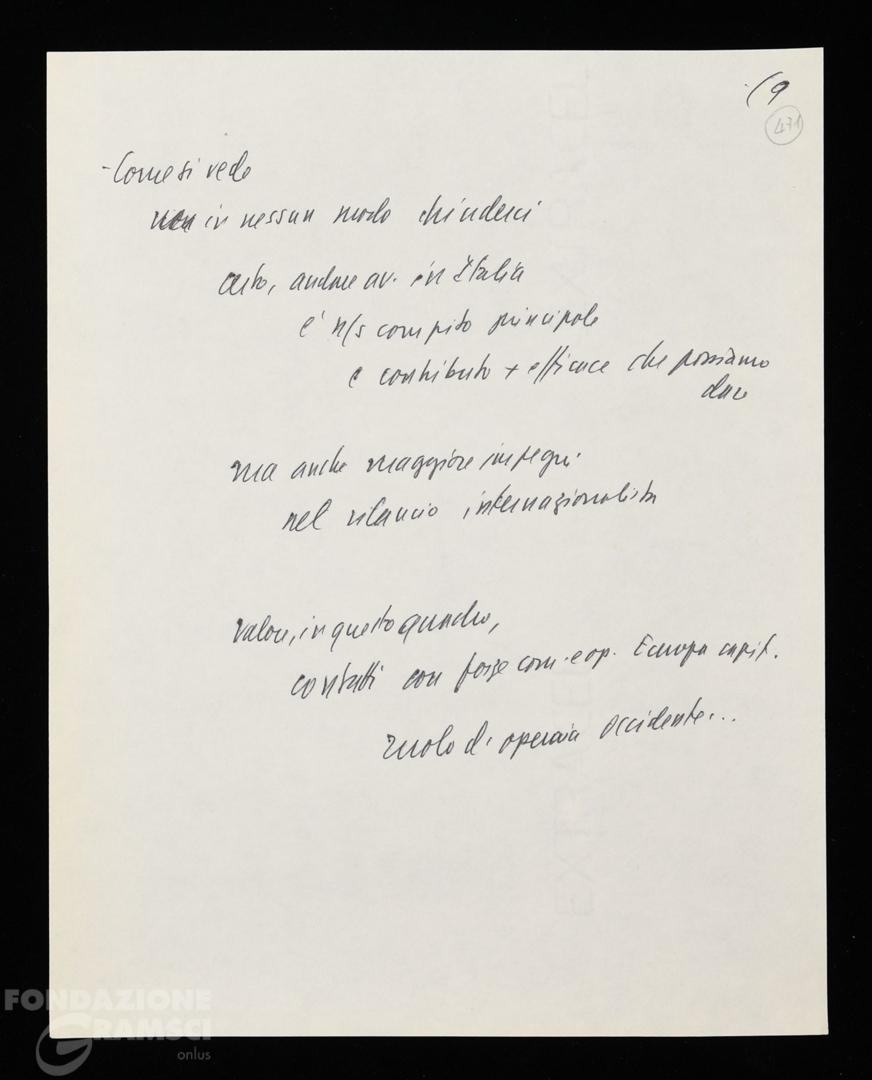 (9
471
- Come si vede
non in nessun modo chiuderci
certo, andare av. in Italia
è n/s compito principale
e contributo + efficace che possiamo
dare
ma anche maggiore impegni
nel rilancio internazionalista
valore, in questo quadro,
contatti con forze com. e op. Europa capit.
ruolo di operaia occidente...
FONDAZIONE
GRAMSCI
onlus